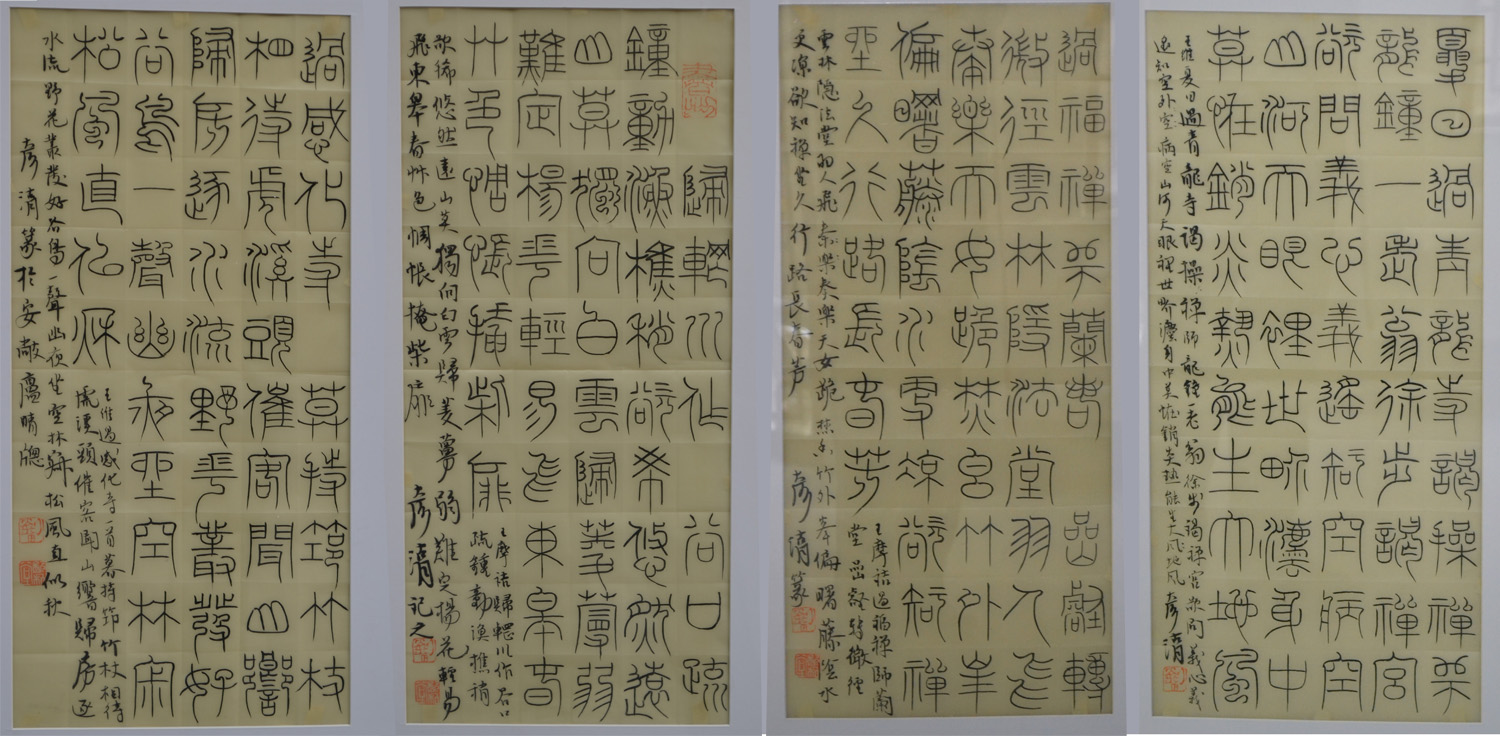 夏日過青龍寺謁操禪師
龍鐘一老翁徐步謁禪宮
欲問義心義遙知空病空
山河天眼裡世界法身中
莫怪銷炎熱能生大地風
王維夏日過青龍寺謁操禪師龍鐘老翁徐步謁禪宮欲問義心義
遙知空外空病空山河天眼裡世界法身中莫怪銷炎熱能生大地風 彥清
過福禪師蘭若嵒壑轉
微徑雲林隱法堂羽人飛
奏樂天女跪焚香竹外峯
偏曙藤陰水更涼欲知禪
坐久行路長春芳
王摩詰過福禪師蘭
堂嵒壑轉微徑
雲林隱法堂羽人飛奏樂奏樂天女跪焚香竹外峯偏曙藤陰水
更涼欲知禪坐久行路長春芳 彥清篆
歸輞川作谷口疏
鐘動漁樵稍欲希悠然遠
山莫獨向白雲歸菱蔓弱
難定楊花輕易飛東皋春
艸色惆悵掩柴扉
王摩詰歸輞川作谷口
疏鐘動漁樵稍
欲稀悠然遠山莫獨向白雲歸菱蔓弱難定楊花輕易
飛東皋春艸色惆悵掩柴扉 彥清記之
過感化寺莫持筇竹枝
相待虎溪頭催客聞山響
歸房逐水流野花叢發好
谷鳥一聲幽夜坐空林寂
松風直似秋
王維過感化寺一首暮持筇竹杖相待
虎溪頭催客聞山響歸房逐
水流野花叢發好谷鳥一聲幽夜坐空林寂松風直似秋
彥清篆於安敞廬晴窗